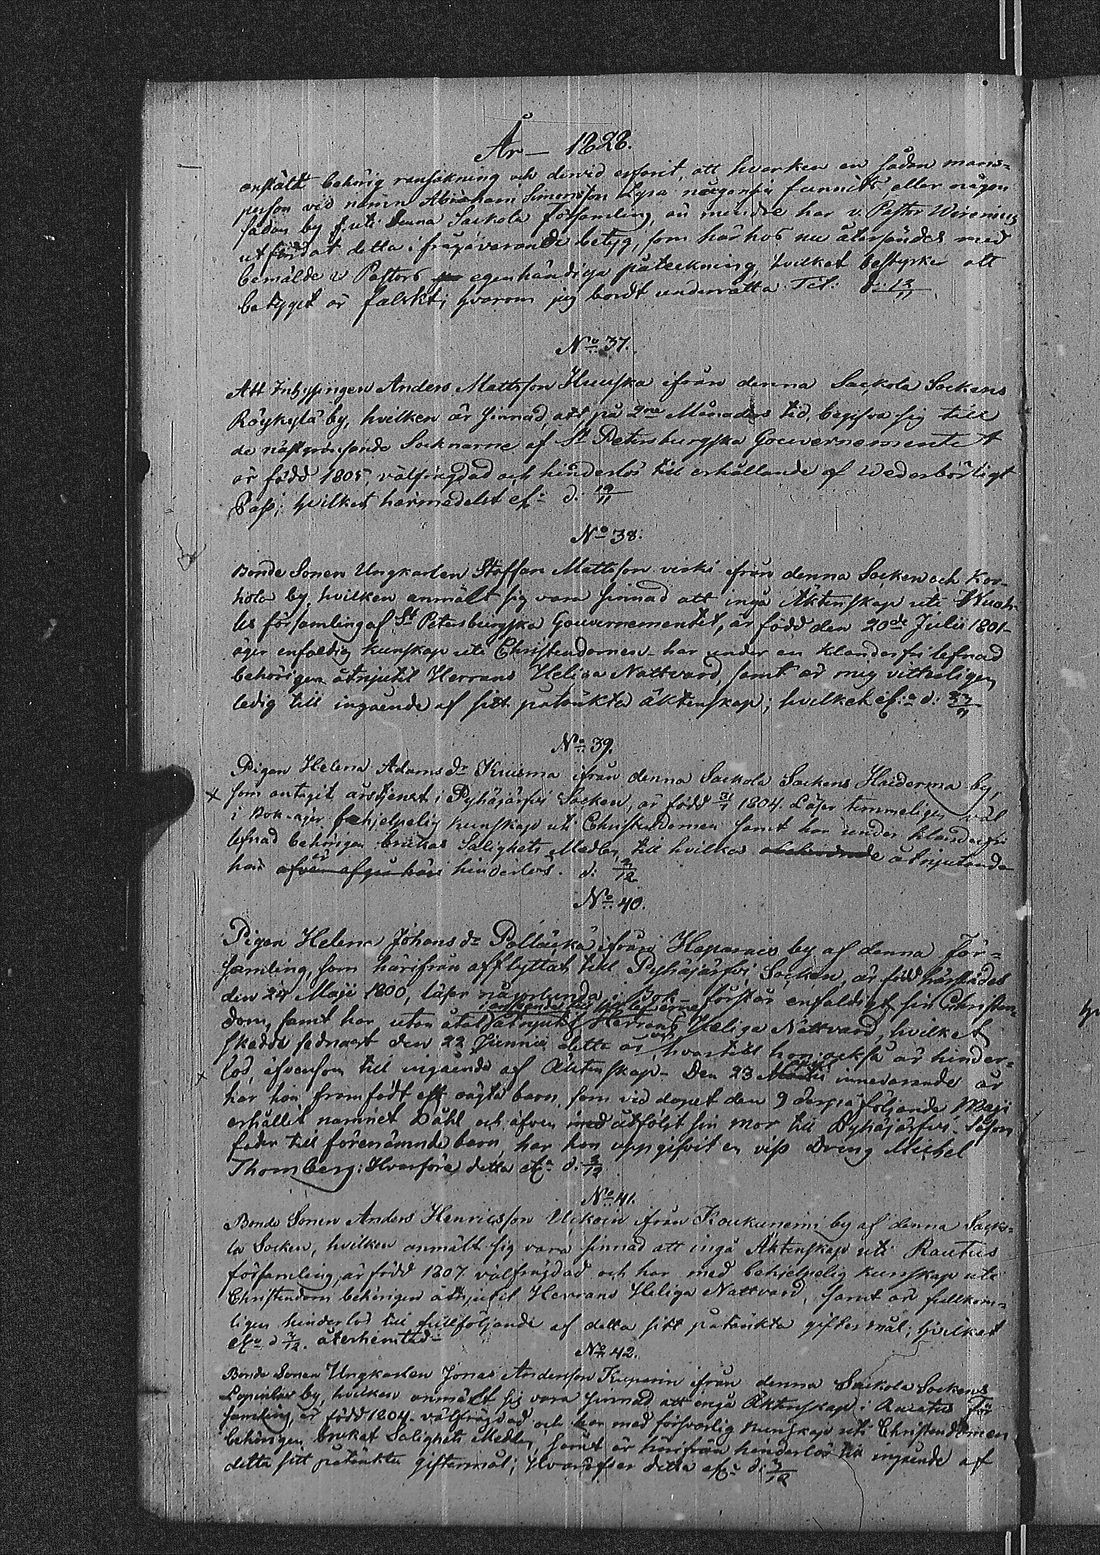 År 1828.
anstält behörig ransakning och dervid erfarit, att hvarken en sådan mans-
person vid namn Abraham Simonsson Lyra någonsin funnits eller någon
sådan by uti denna Sackola församling, ei mindre har v. Pastor Wirenius
utfärdat detta ifrågavarande betyg, som härhos nu återsändes med
bemälde v Pastors egenhändiga påteckning, hvilket bestyrker att
betyget är falskt; hvarom jag bordt underrätta Tit: d: 13/11.
No 37.
Att Inhysingen Anders Mattsson Huuska ifrån denna Sackola Sockens
Röykylä by, hvilken är sinnad, att på 2ne Månaders tid begifva sig till
de näst gränsande Socknarne af St Petersburgska Gouvernementet
är född 1805, välfrägdad och hinderlös till erhållande af wederbörligt
Pass; hvilket härmedelst d: 19/11
No 38.
Bonde Sonen Ungkarlen Staffan Mattsson ifrån denna Socken och Kor-
hola by, hvilken anmält sig vara sinnad att ingå Äktenskap uti
församling af St Petersburgska Gouvernementet, är född den 20de Julii 1801
äger enfaldig kunskap uti Christendomen har under en klanderfri lefnad
behörigen åtnjutit Herrans Heliga Nattvard, samt är mig vitterligen
ledig till ingående af sitt påtänkta äktenskap; hvilket d:
No 39.
Pigan Helena Adams dr Kuisma ifrån denna Sackola Sockens Haiderma by,
som antagit årstjenst i Pyhäjärfvi Socken, är född 1804. Läser temmeligen väl
i Bok äger behjelpelig kunskap uti Christendomen samt har under klanderfri
lefnad behörigen brukat Salighets Medlen, till hvilkas åtnjutande
hon är hinderlös. d: 2/12
No 40.
Pigan Helena Johans dr Pöllänen ifrån Haparais by af denna För-
samling, som härifrån afflyttat till Pyhäjärfvi Socken, är född härstädes
den 24 Maji 1800, läser någorlunda i Bok förstår enfaldigt sin Christen-
dom, samt har utan åtal åtnjutit Herrans Heliga Nattvard, hvilket
skedde sednast den 22 Junii detta år, hvartill hon också är hinder-
lös, äfvensom till ingående af Äktenskap. Den 23 innevarande år
har hon framfödt ett oägta barn, som vid dopet den 9 derpåföljande Maji
erhållit namnet och äfven med åtföljt sin mor till Pyhäjärfvi. Såsom
fader till förenämnde barn har hon uppgifvit en viss Dräng Michel
Thomberg; Hvarföre detta d: 2/12
No 41.
Bonde Sonen Anders Henricsson Ukkoin ifrån Koukunemi by af denna Sacko-
la Socken, hvilken anmält sig vara sinnad att ingå Äktenskap uti Rautus
församling, är född 1807 välfrägdad och har med behjelpelig kunskap uti
Christendom behörigen åtnjutit Herrans Heliga Nattvard, samt är fullkom-
ligen hinderlös till fullföljande af detta sitt påtänkta giftermål; hvilket
d 3/12.
No 42.
Bonde Sonen Ungkarlen Jonas Andersson Kuparin ifrån denna Sackola Sockens
by, hvilken anmält sig vara sinnad att ingå Äktenskap i Rautus För-
samling, är född 1804 välfrägdad och han med försvarlig kunskap uti Christendomen
behörigen brukat Salighets Medlen, samt är härifrån hinderlös till ingående af
detta sitt påtänkta giftermål; Hvaröfver detta d: 3/12